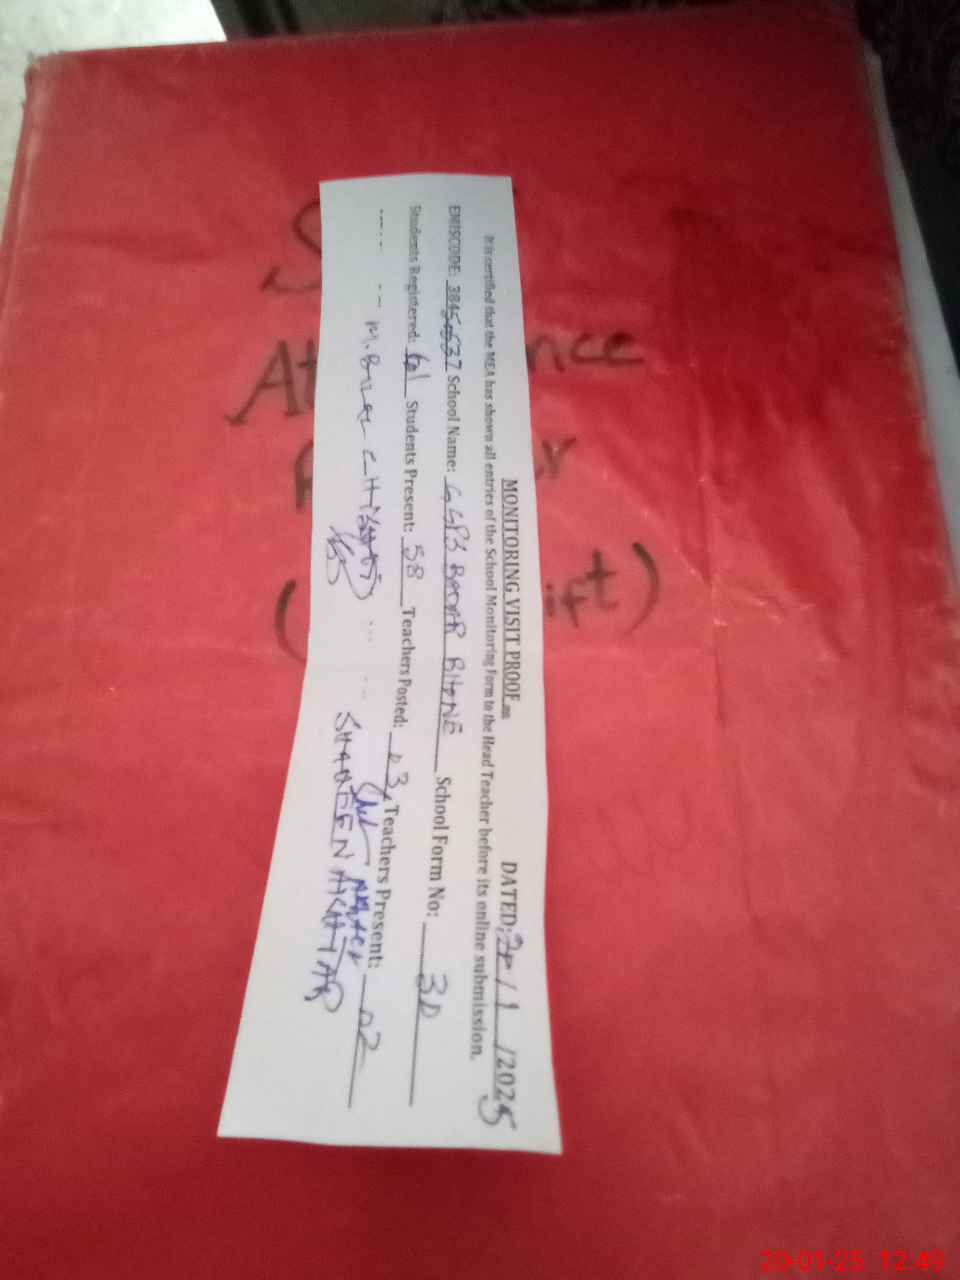 MONITORING VISIT PROOF DATED: 20/1/2025
It is certified that the MEA has shown all entries of the School Monitoring Form to the Head Teacher before its online submission.
EMISCODE: School Name: School Form No: 30
Students Registered: 61 Students Present: 58 Teachers Posted: 03 Teachers Present: 02
M. BILAL CHISHTI SHAHEEN AKHTAR
At nce
ift)
20-01-25 12:49